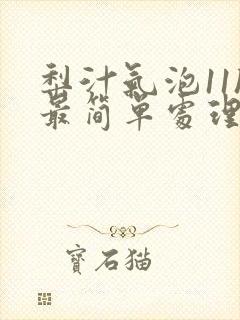 梨汁氣泡11
最簡單處理
寶石貓